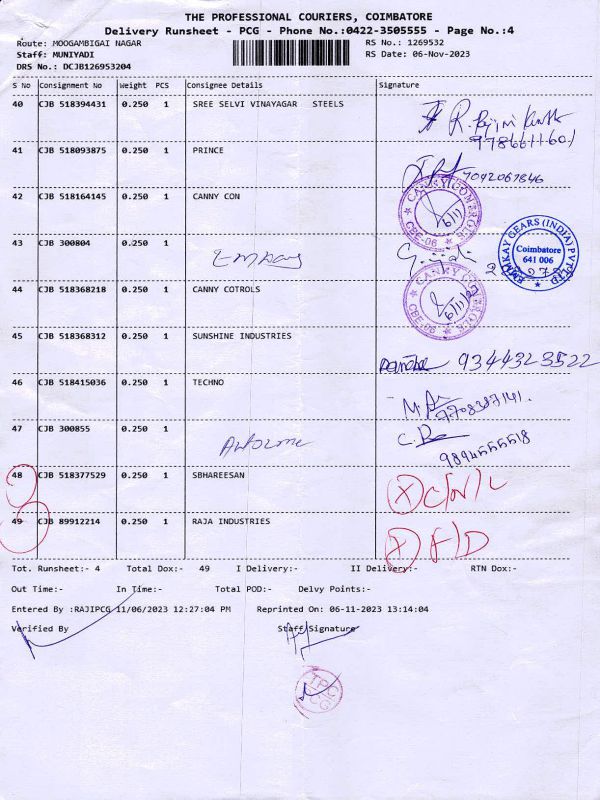 THE PROFESSIONAL COURIERS, COIMBATORE
Delivery Runsheet - PCG - Phone No.:0422-3505555 - Page No.:4
Route: MOOGAMBIGAI NAGAR RS No.: 1269532
Staff: MUNIYADI RS Date: 06-Nov-2023
DRS No.: DCJB126953204
S No Consignment No Weight PCS Consignee Details Signature
40 CJB 518394431 0.250 1 SREE SELVI VINAYAGAR STEELS
9786611601
41 CJB 518093875 0.250 1 PRINCE
7042067846
42 CJB 518164145 0.250 1 CANNY CON
CBE-06
43 CJB 300804 0.250 1
EMMKAY GEARS (INDIA) PVT LTD
Coimbatore
641 006
44 CJB 518368218 0.250 1 CANNY COTROLS
CBE-06
45 CJB 518368312 0.250 1 SUNSHINE INDUSTRIES
9344323522
46 CJB 518415036 0.250 1 TECHNO
47 CJB 300855 0.250 1
9894555518
48 CJB 518377529 0.250 1 SBHAREESAN
X C/N/L
49 CJB 89912214 0.250 1 RAJA INDUSTRIES
X F/D
Tot. Runsheet:- 4 Total Dox:- 49 I Delivery:- II Delivery:- RTN Dox:-
Out Time:- In Time:- Total POD:- Delvy Points:-
Entered By :RAJIPCG 11/06/2023 12:27:04 PM Reprinted On: 06-11-2023 13:14:04
Verified By Staff Signature
TPC
PCG